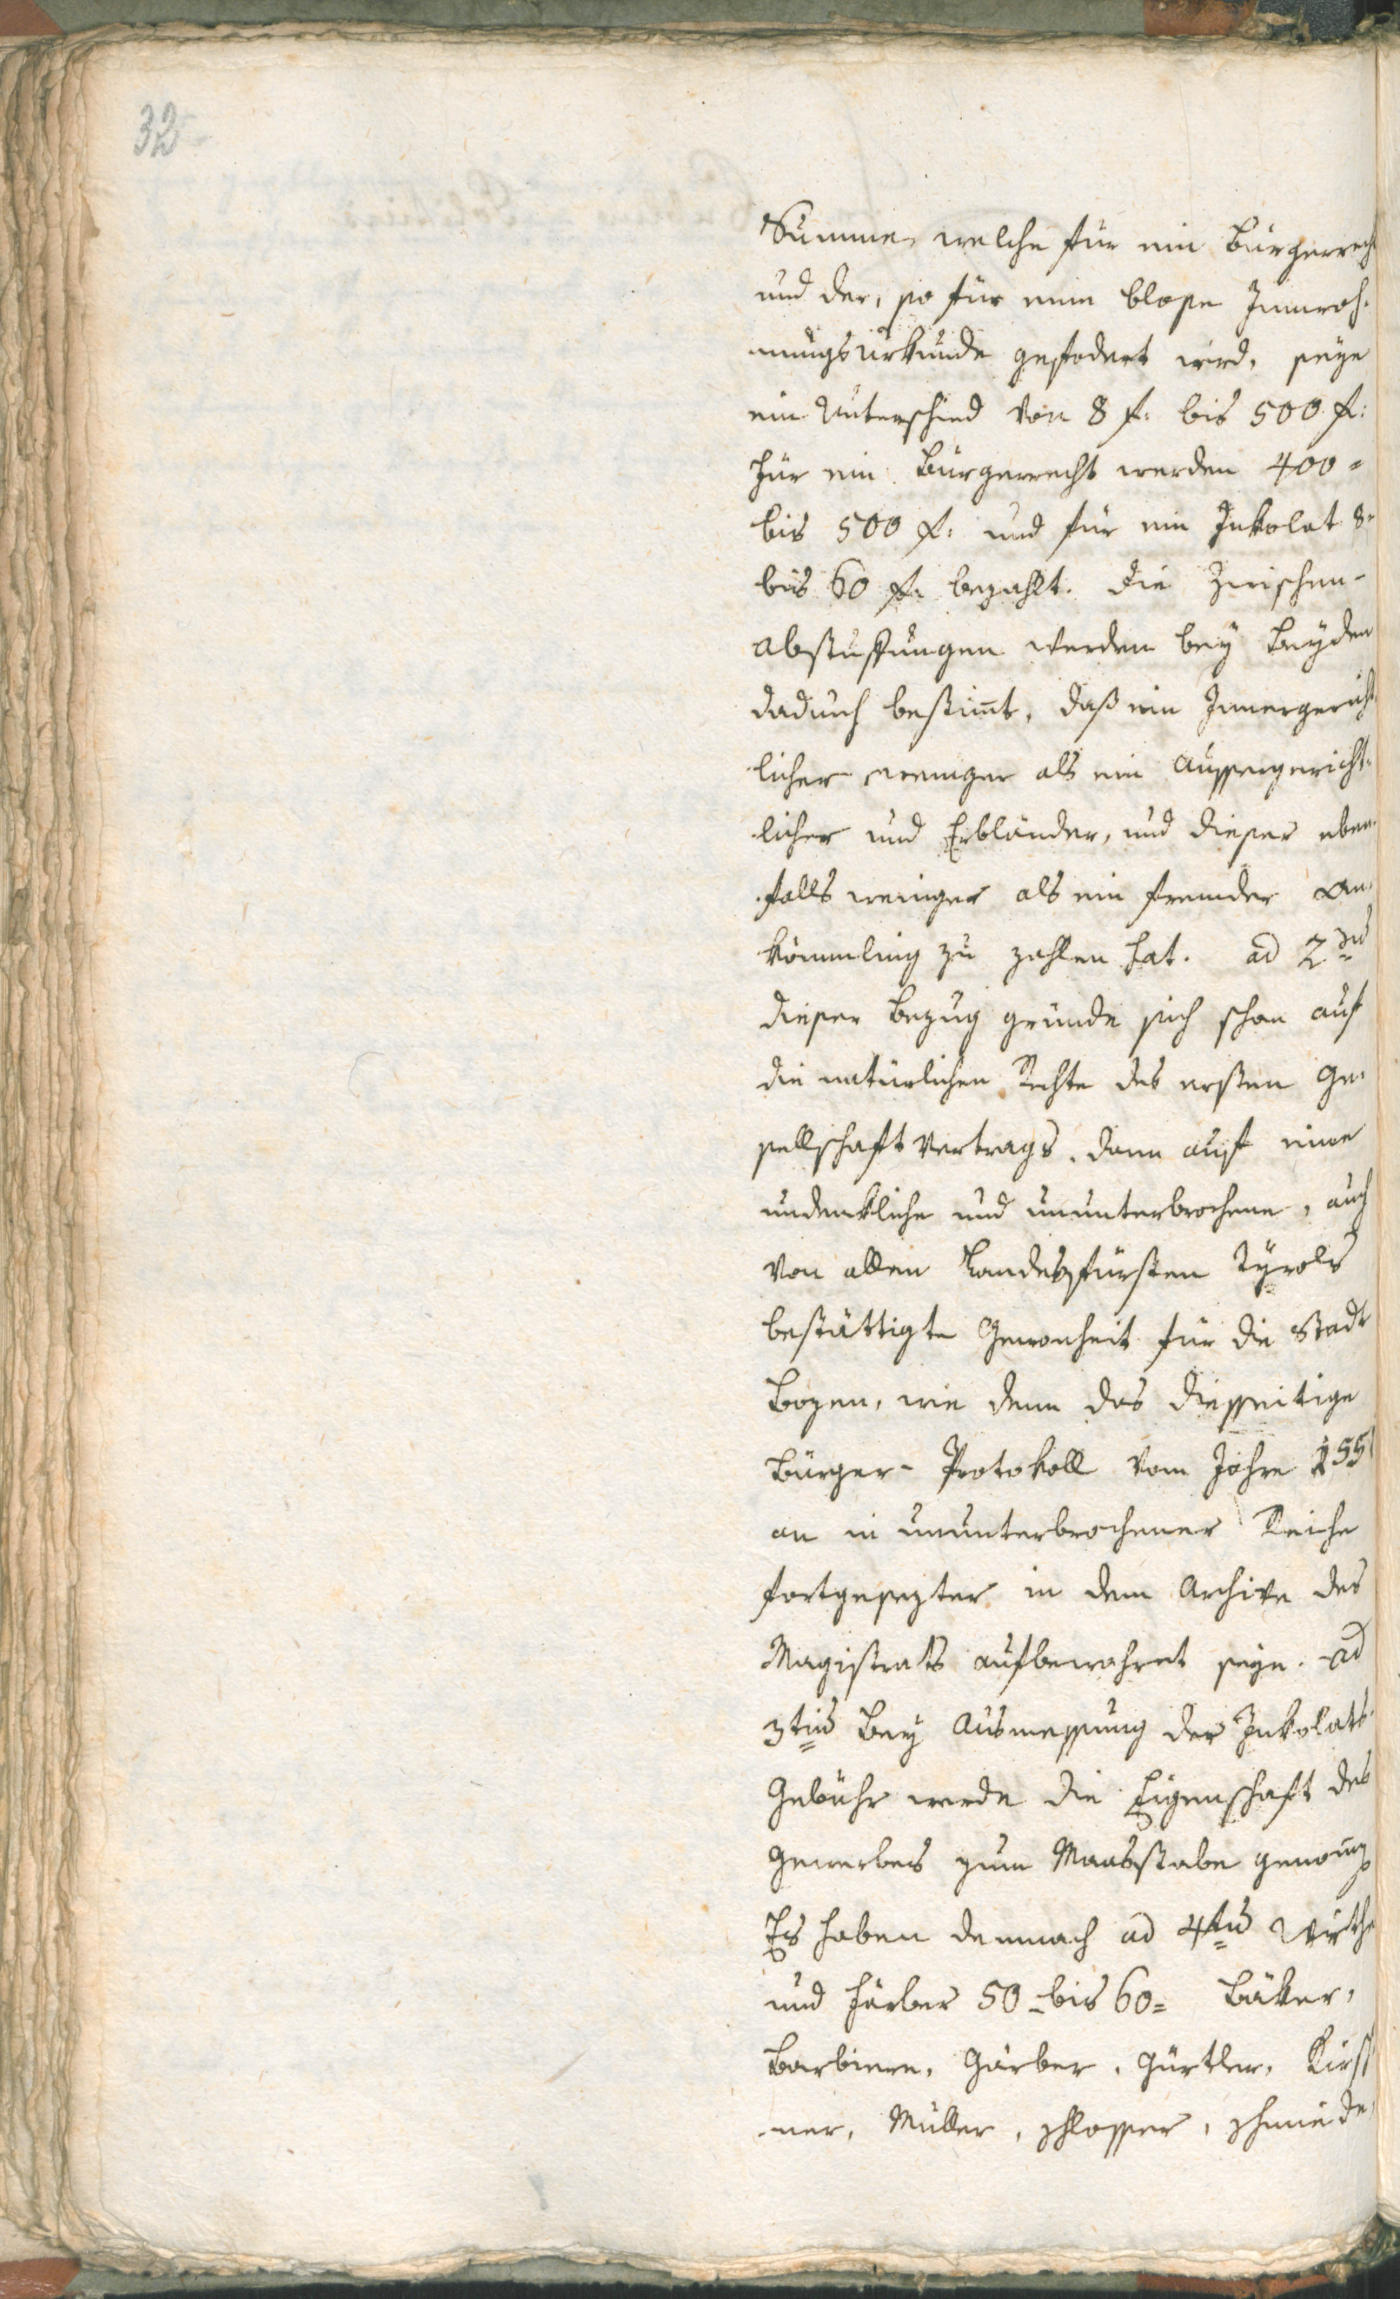 32
Summe, welche für ein Bürgerrech
und der, so für eine blose Innwoh-
nungsurkunde gefodert wird, seye
ein Unterschied von 8 f. bis 500 f:
Für ein Bürgerrecht werden 400 =
bis 500 f: und für ein Inkolat 8-
bis 60 f. bezahlt. Die Zwischen-
abstuffungen werden bey Beyden
dadurch bestimt, daß ein Innergericht
licher weniger als ein Aussergericht-
licher und Erbländer, und dieser eben-
falls weniger als ein fremder An-
kömmling zu zahlen hat. ad 2dū
dieser Bezug gründe sich schon auf
die natürlichen Rechte des ersten Ge-
sellschaft Vertrags. dann auf eine
undenkliche und ununterbrochene, auch
von allen Landesfürsten Tyrols
bestättigte Gewonheit für die Stadt
Bozen, wie denn das diesseitige
Bürger-Protokoll vom Jahre 155
an in ununterbrochener Reiche
fortgesezter in dem Archive des
Magistrats aufbewahret seye. ad
3tiū Bey Ausmessung der Inkolats-
Gebühr werde die Eigenschaft des
Gewerbes zum Maasstabe genom̄
Es haben demnach ad 4tū Wirthe
und Färber 50 - bis 60= Bäker,
Barbiere, Gärber, Gürtler, Kirsch
ner, Müller, Schlosser, Schmiede,